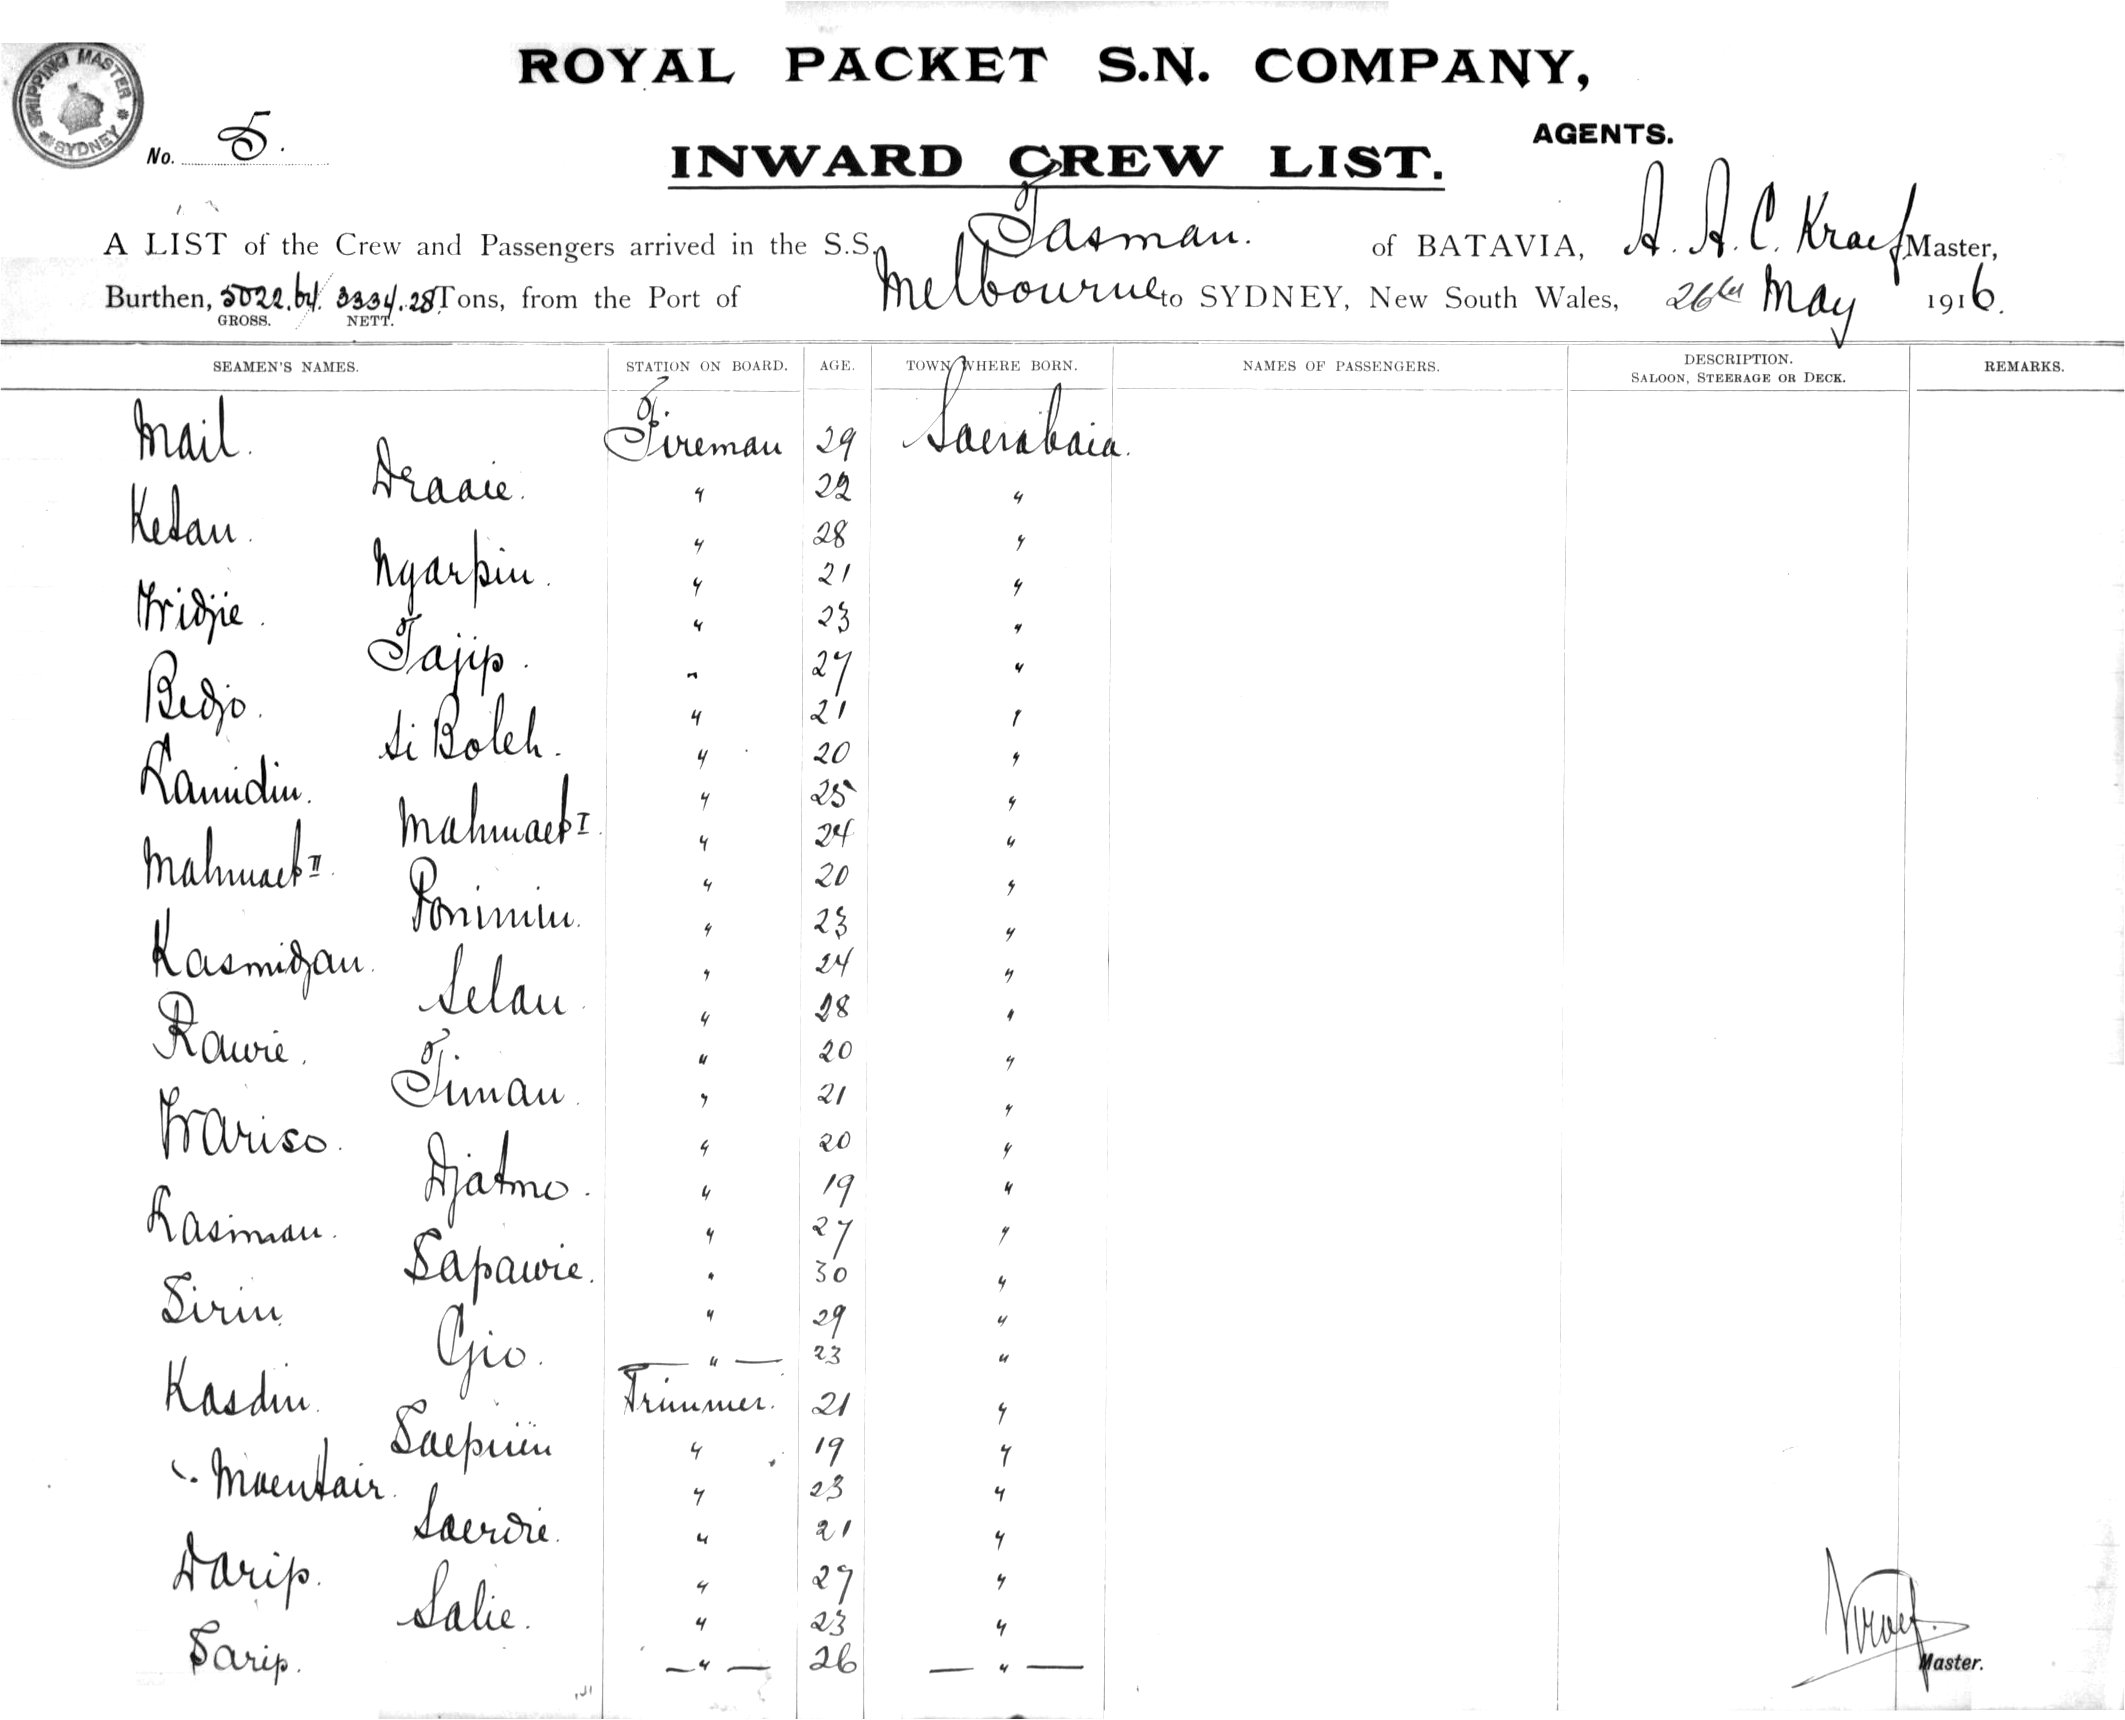 SHIPPING MASTER
SYDNEY
ROYAL PACKET S.N. COMPANY,
AGENTS.
No. 5.
INWARD CREW LIST.
A LIST of the Crew and Passengers arrived in the S.S. Tasman. of BATAVIA, A. A. C. Kraef Master,
Burthen, 5022.64 3334.28 Tons, from the Port of Melbourne to SYDNEY, New South Wales, 26th May 1916.
GROSS. NETT.
SEAMEN'S NAMES. STATION ON BOARD. AGE. TOWN WHERE BORN. NAMES OF PASSENGERS. DESCRIPTION. SALOON, STEERAGE OR DECK. REMARKS.
Mail. Fireman 29 Soerabaia.
Draaie. " 22 "
Ketan. " 28 "
Ngarpin. " 21 "
Wridjie. " 23 "
Tajip. " 27 "
Bedjo. " 21 "
Si Boleh. " 20 "
Kamidin. " 25 "
Mahmaet I. " 24 "
Mahmaet II. " 20 "
Ponimin. " 23 "
Kasmidjan. " 24 "
Selan. " 28 "
Rawie. " 20 "
Timan. " 21 "
Wariso. " 20 "
Djatmo. " 19 "
Kasiman. " 27 "
Sapawie. " 30 "
Sirin. " 29 "
Gio. — " — 23 "
Kasdin. Trimmer. 21 "
Saepiün " 19 "
Moentair. " 23 "
Soerdie. " 21 "
Darip. " 27 "
Salie. " 23 "
Sarip. — " — 26 — " —
Kraef.
Master.